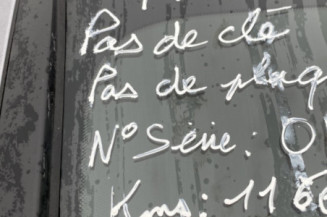 Pas de clé
Pas de plaq
N° Série: 0
Kms: 116